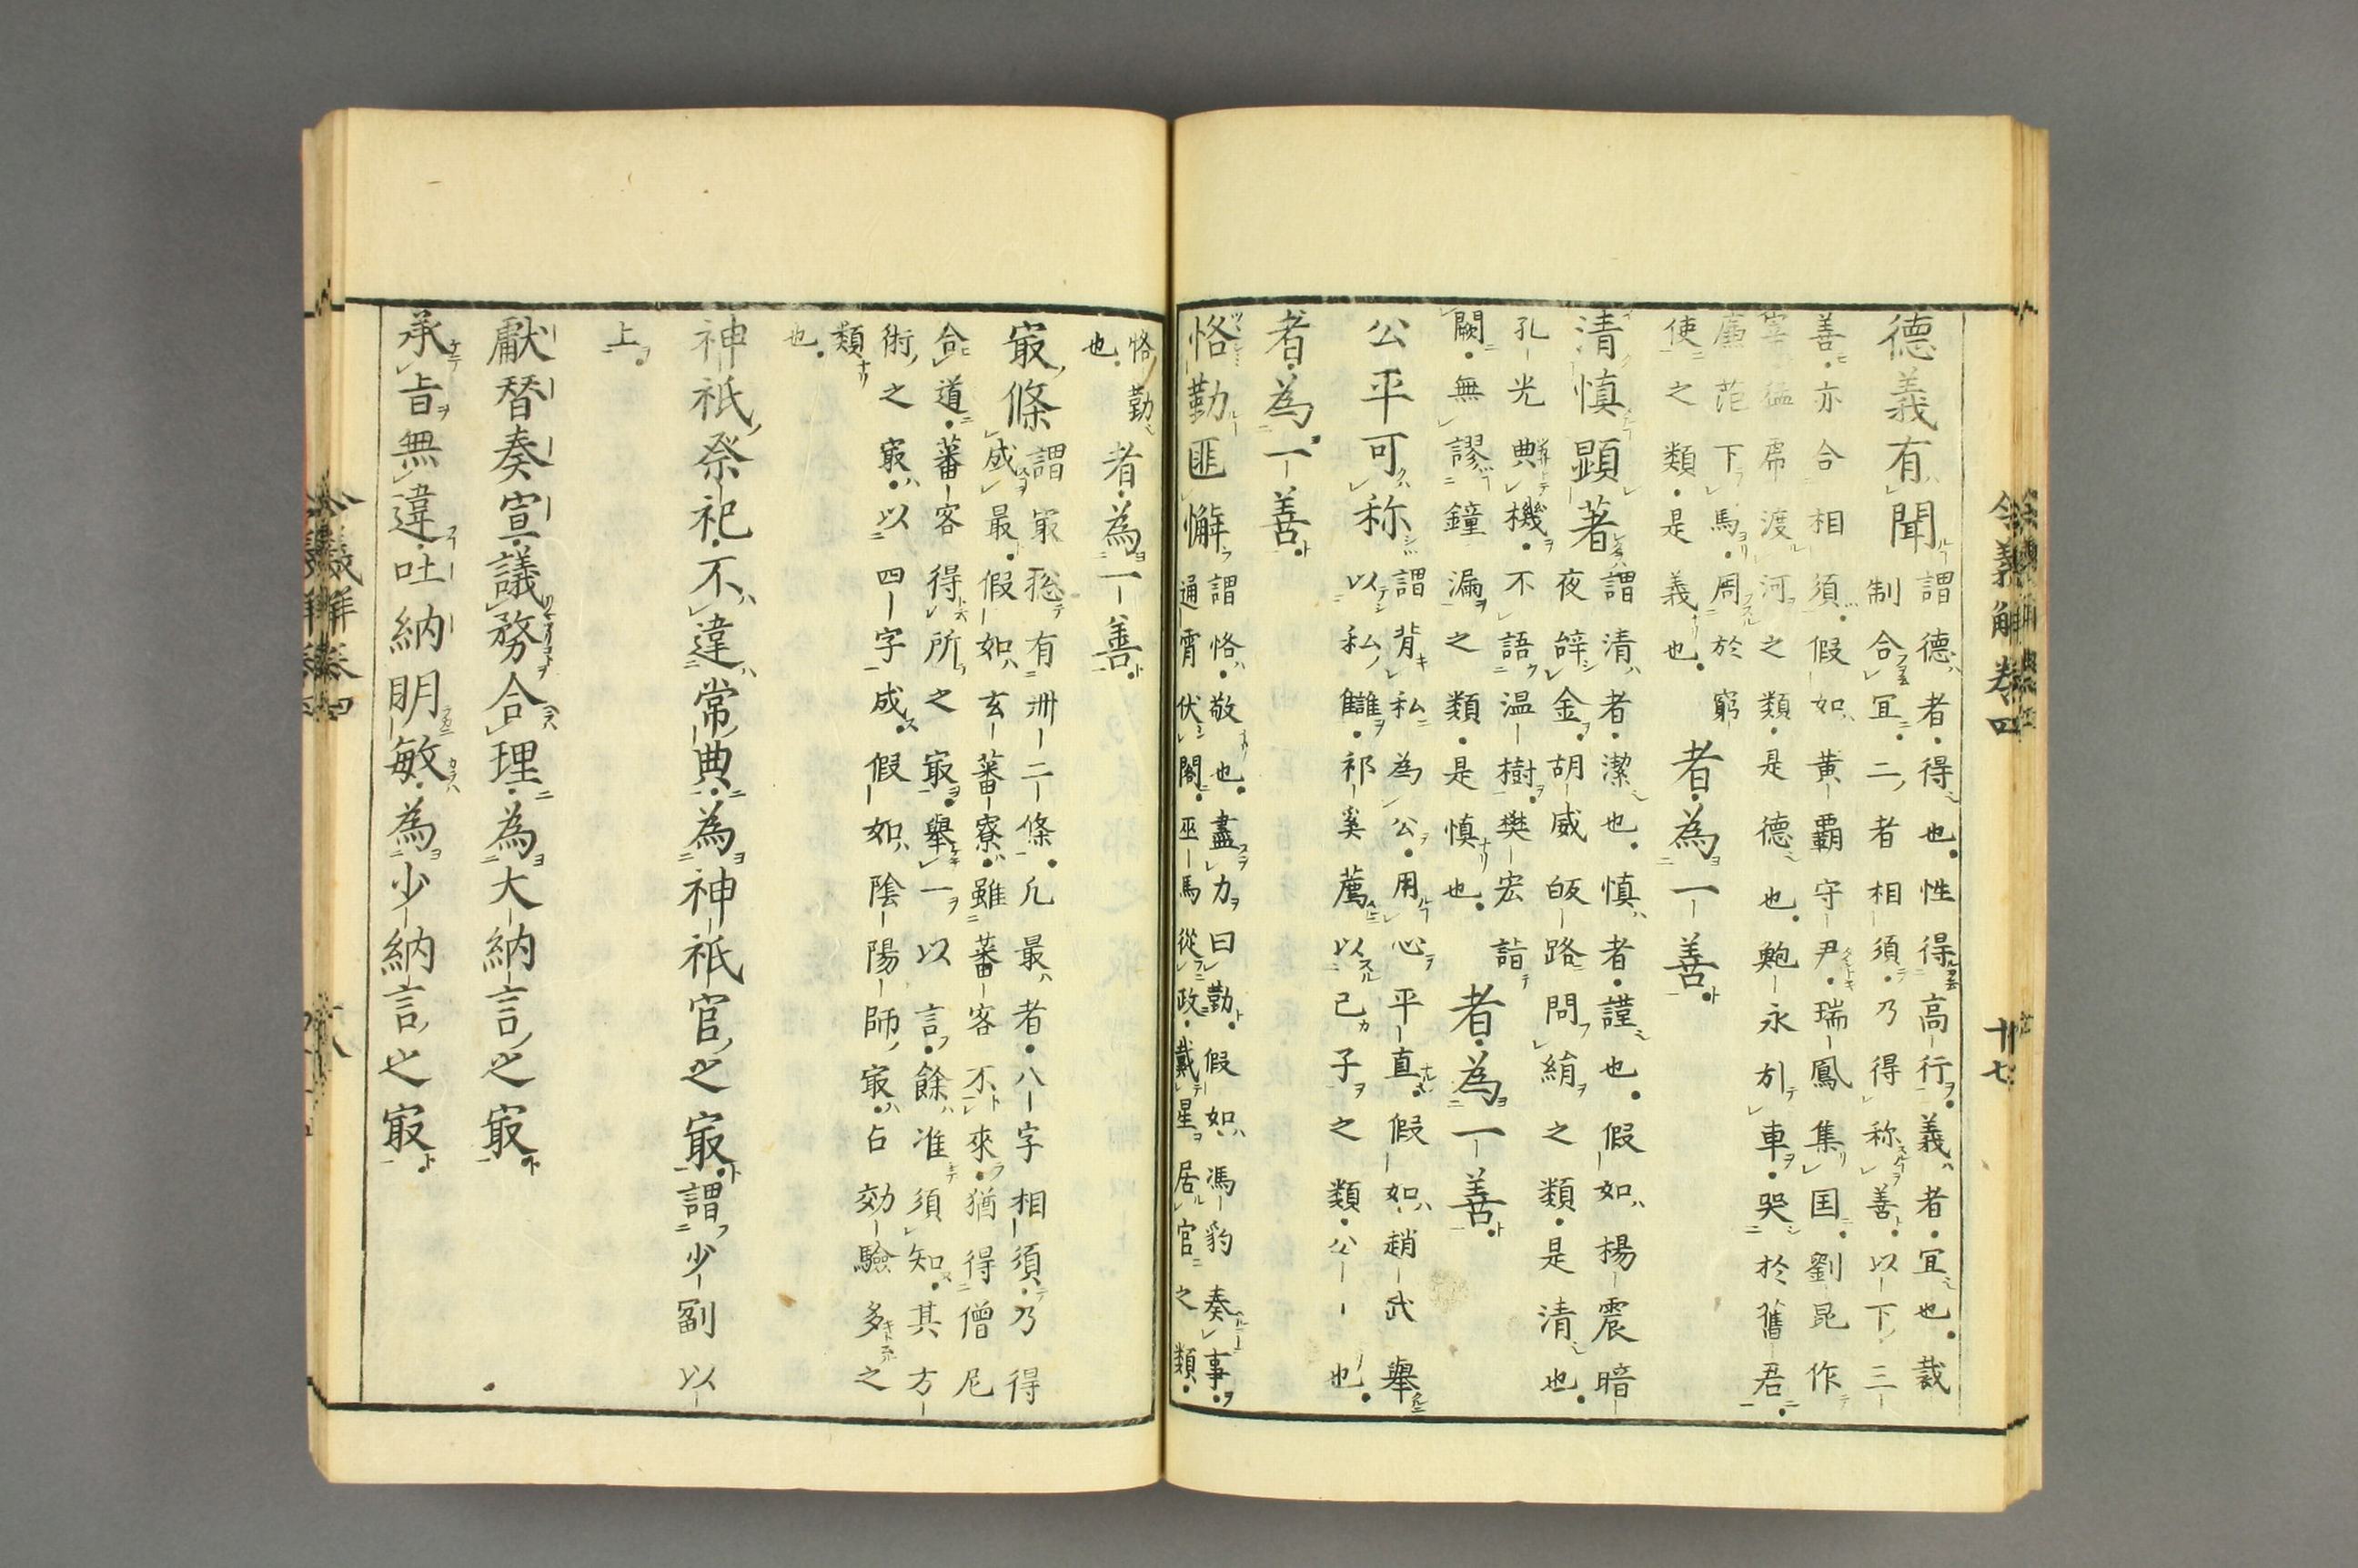 德義有聞謂德者得也性得高行義者宜也裁
制合宜二者相須乃得称善以下三
善亦合相須假如黄覇守尹瑞鳳集国劉昆作
宰猛虎渡河之類是德也鮑永引車哭於舊君
廉范下馬周於窮
使之類是義也
者為一善
清慎顕著謂清者潔也慎者謹也假如楊震暗
夜辞金胡威皈路問絹之類是清也
孔光典機不語温樹樊宏詣
闕無謬鐘漏之類是慎也
者為一善
公平可称謂背私為公用心平直假如趙武舉
以私讎祁奚薦以己子之類公一一也
者為一善
恪勤匪懈謂恪敬也盡力曰勤假如馮豹奏事
通霄伏閤巫馬從政戴星居官之類
恪勤
也
者為一善
㝡條謂㝡惣有卌二條凡最者八字相須乃得
成最假如玄蕃寮雖蕃客不來猶得僧尼
合道蕃客得所之㝡舉一以言餘准須知其方
術之㝡以四字成假如陰陽師㝡占効驗多之
類
也
神祇祭祀不違常典為神祇官之㝡謂少副以
上
獻替奏宣議務合理為大納言之㝡
承旨無違吐納明敏為少納言之㝡
令義解卷四
十七